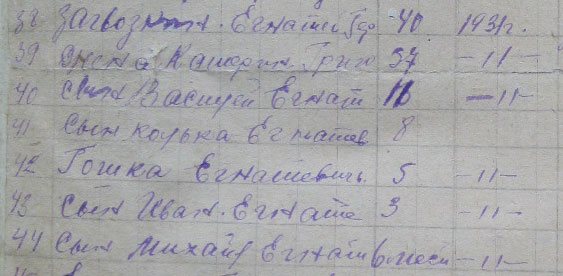 38 Загвозкин. Егнатий Гер 40 1931г.
39 жена Катерин Григо 37 -11-
40 сын Василей Егнат 16 -11-
41 сын колька Егнатев 8
42 Гошка Егнатевичь 5 -11-
43 сын Иван. Егнате 3 -11-
44 сын михаил Егнат 6 меся -11-